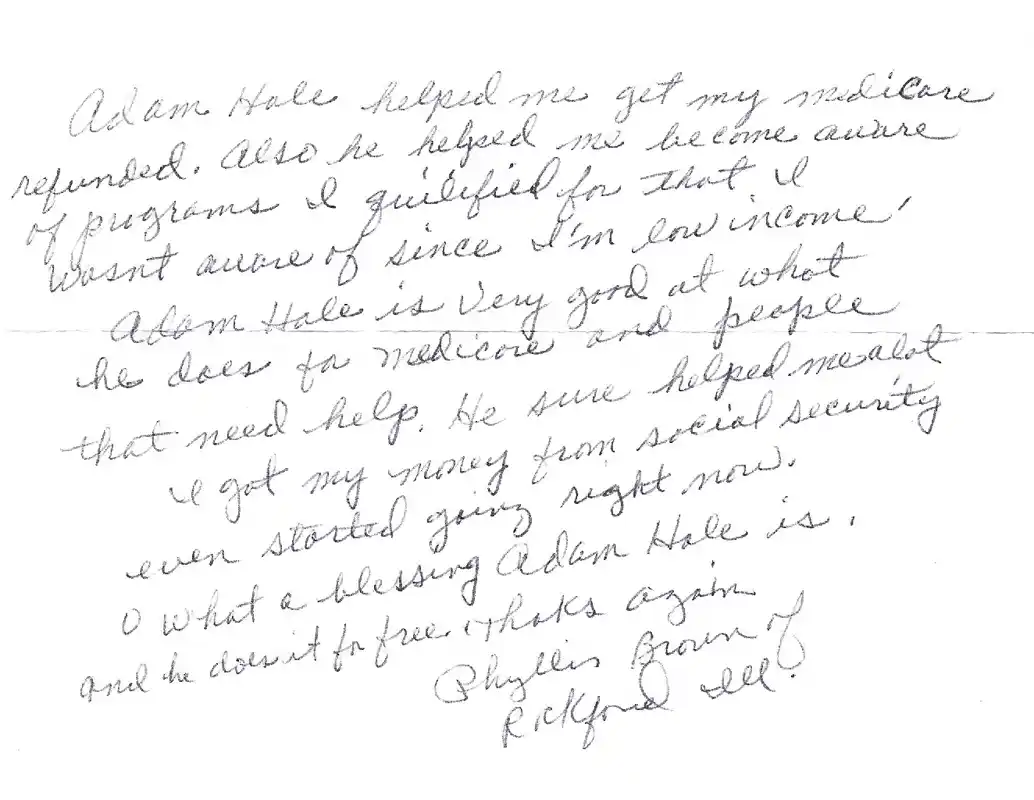 Adam Hale helped me get my medicare
refunded. Also he helped me become aware
of programs I quilified for that I
wasnt aware of since I'm low income.
Adam Hale is very good at what
he does for medicare and people
that need help. He sure helped me alot
I got my money from social security
even started going right now.
O what a blessing Adam Hale is.
and he does it for free. Thaks again
Phyllis Brown of
Rockford Ill.